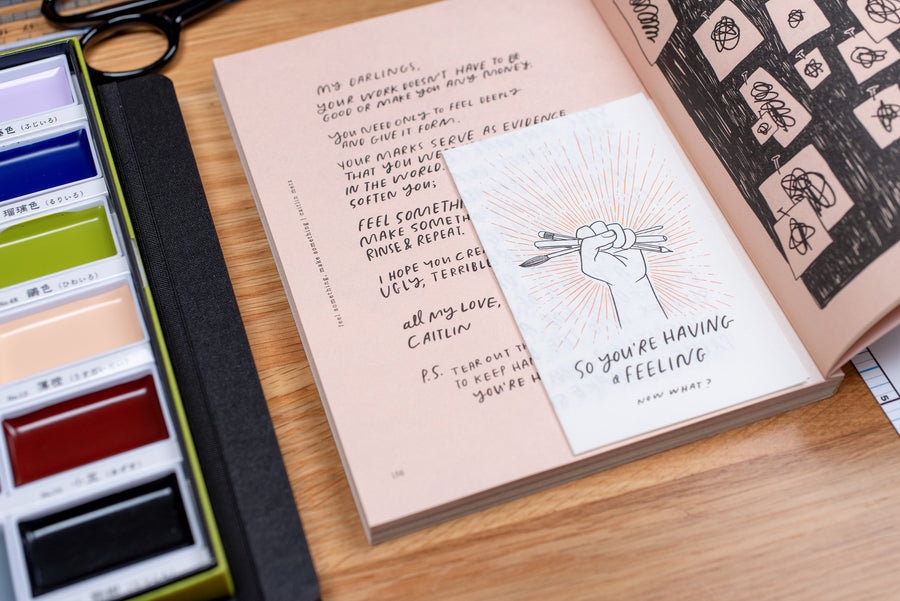 MY DARLINGS,
YOUR WORK DOESN'T HAVE TO BE
GOOD OR MAKE YOU ANY MONEY.
YOU NEED ONLY TO FEEL DEEPLY
AND GIVE IT FORM.
YOUR MARKS SERVE AS EVIDENCE
THAT YOU
IN THE WORLD.
SOFTEN YOU;
FEEL
MAKE
RINSE & REPEAT.
I HOPE YOU
UGLY,
all MY LOVE,
CAITLIN
P.S. TEAR OUT
TO KEEP
YOU'RE
feel something, make something | caitlin metz
SO YOU'RE HAVING
a FEELING
NOW WHAT?
(ふじいろ)
瑠璃色 (るりいろ)
No.48 鶸色 (ひわいろ)
薄橙 (うすだいだい)
小豆 (あずき)
5